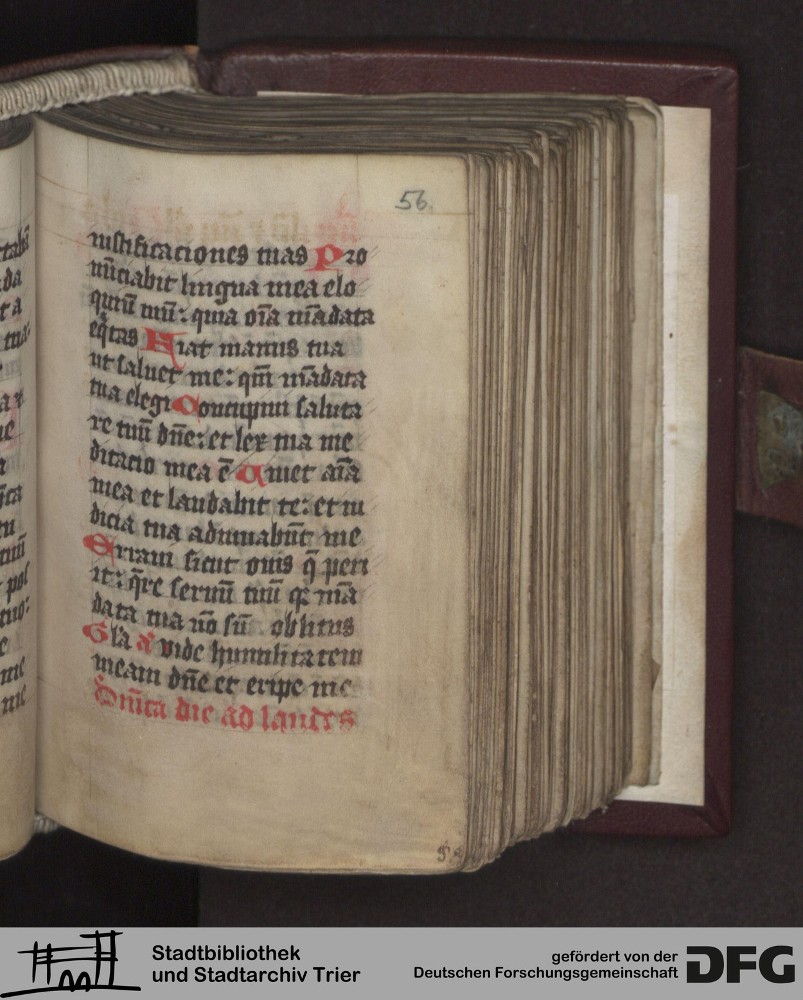 56.
iustificaciones tuas Pro
nūciabit lingua mea elo
quiū tuū: quia oīa mādata
eq̄tas Fiat manus tua
ut saluet me: qm̄ mādata
tua elegi Concupiui saluta
re tuū dn̄e: et lex tua me
ditacio mea ē Uiuet aīa
mea et laudabit te: et iu
dicia tua adiuuabūt me
Erraui sicut ouis q̄ peri
it: q̄re seruū tuū qr mā
data tua nō sū oblitus
Gl'a a' vide humilitatem
meam dn̄e et eripe me
Dn̄ica die ad laudes
Stadtbibliothek
und Stadtarchiv Trier
gefördert von der
Deutschen Forschungsgemeinschaft
DFG